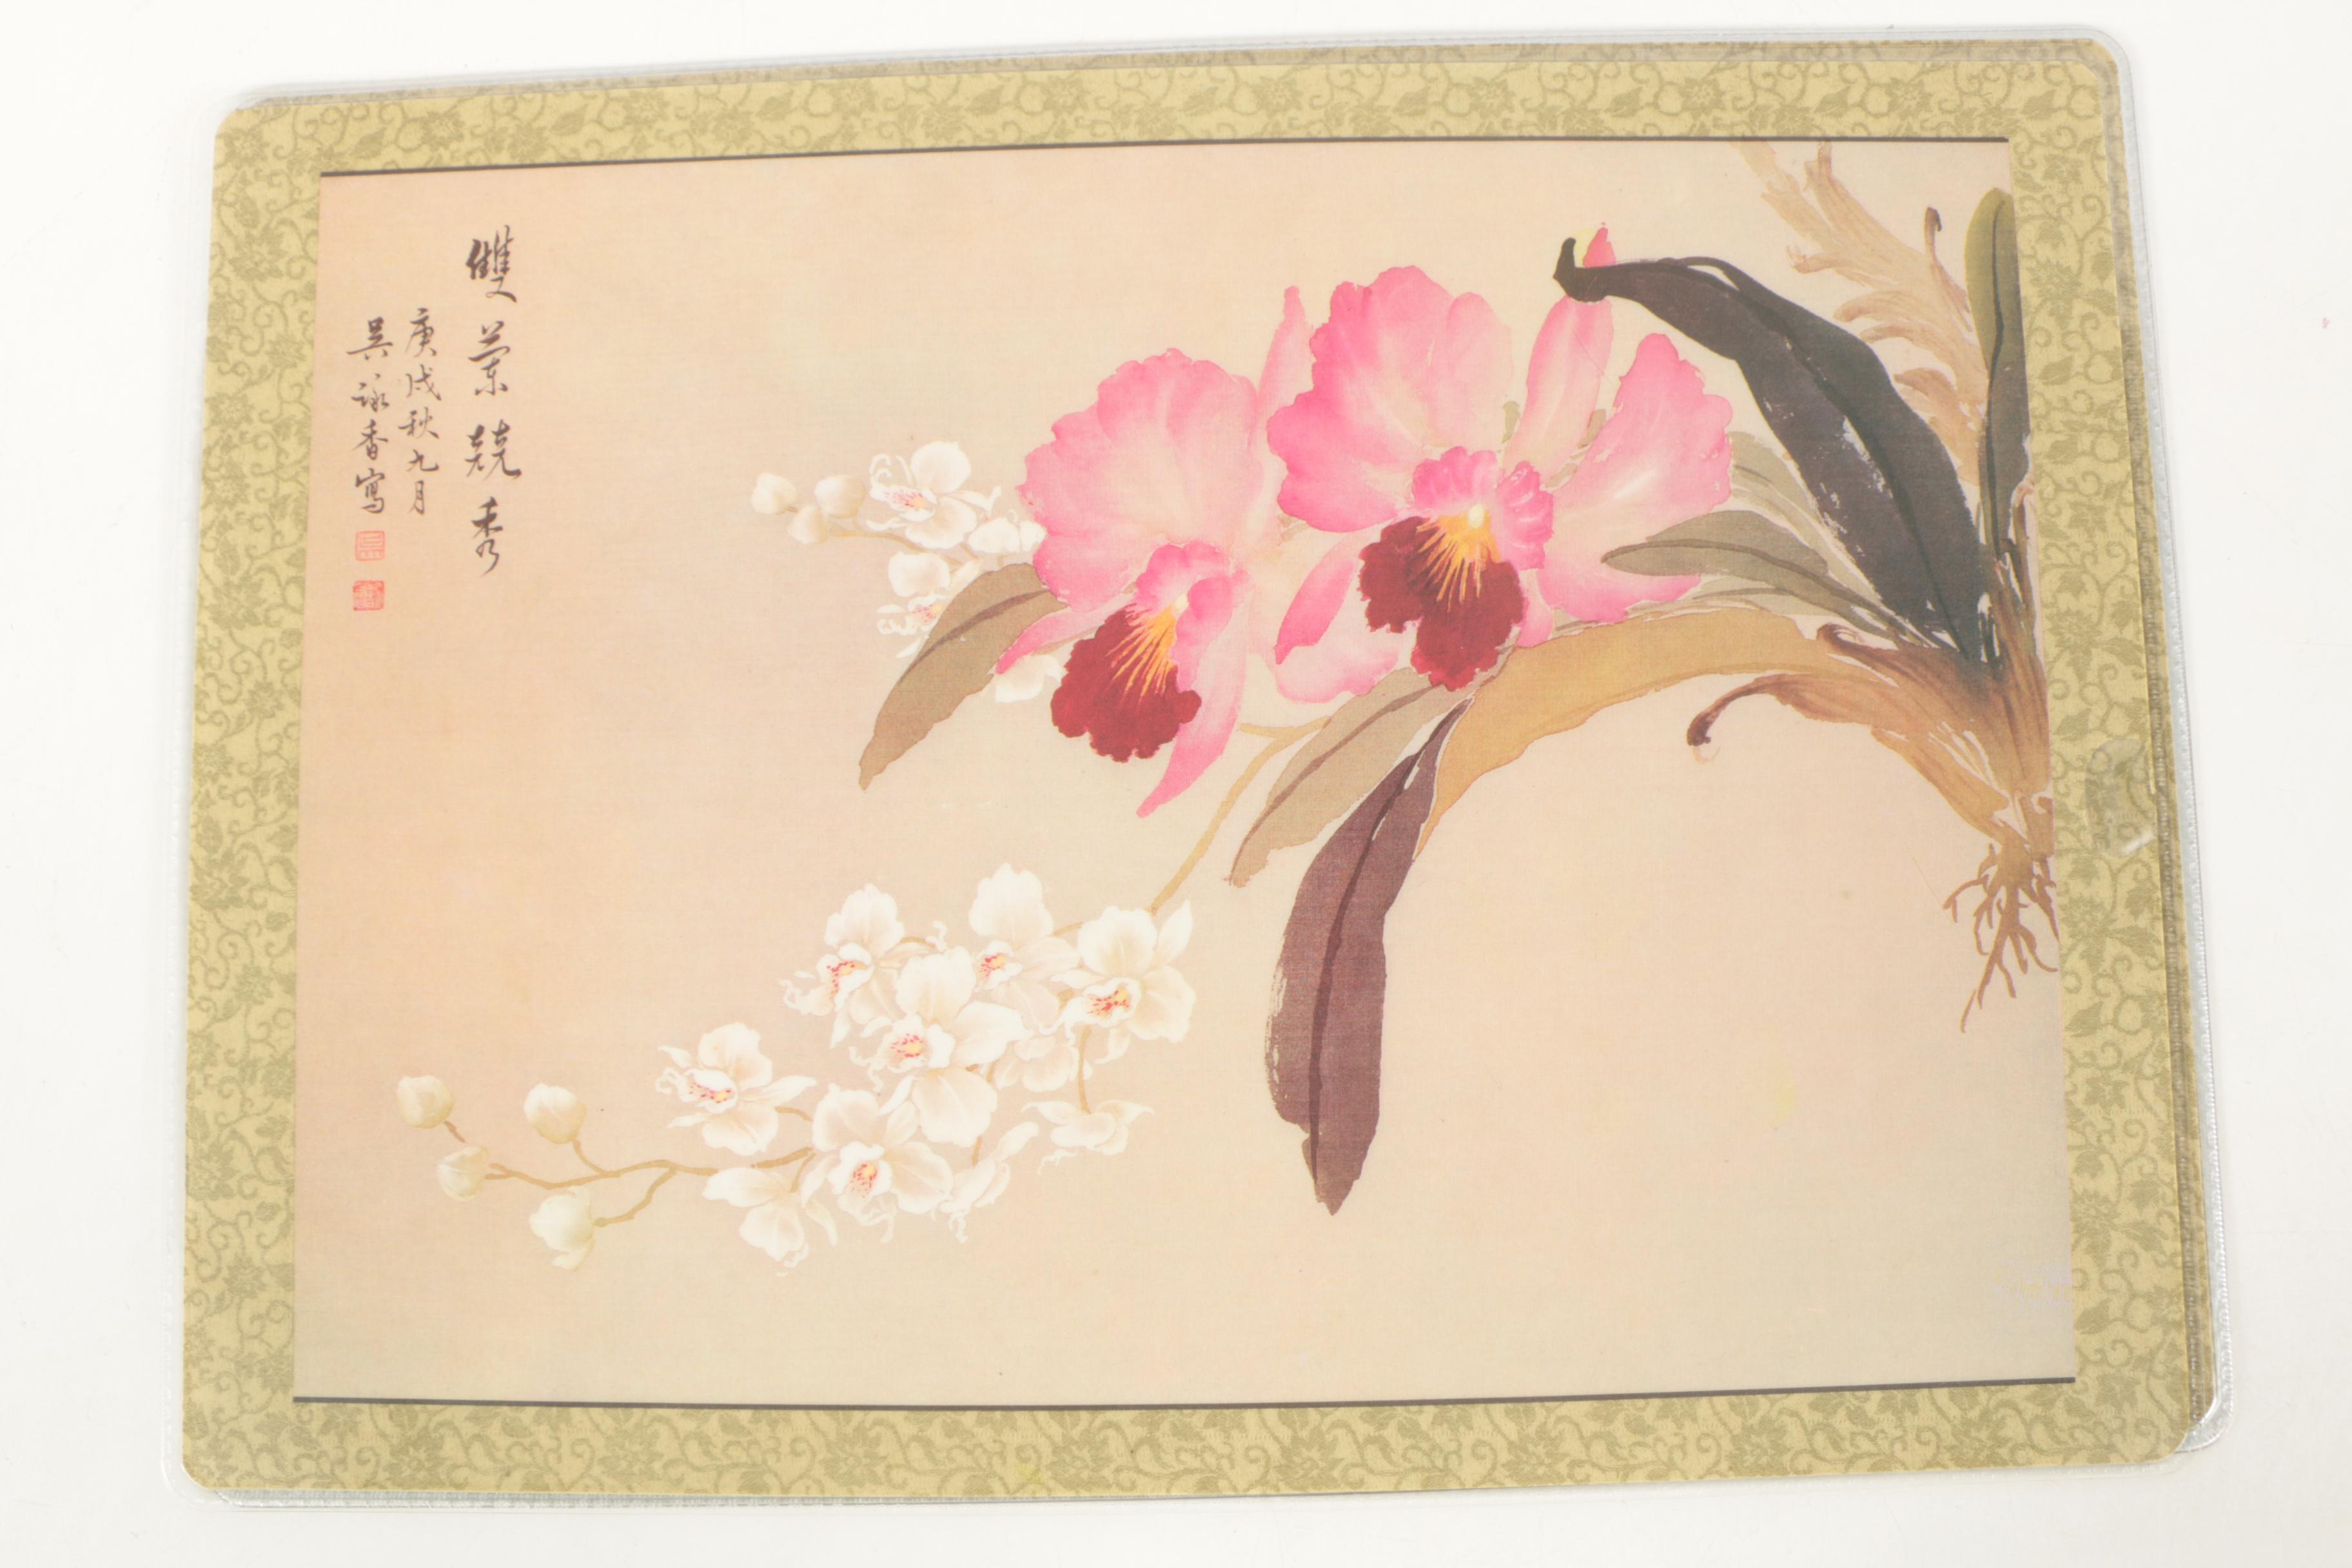 雙蘭競秀
庚戌秋九月
吳詠香寫